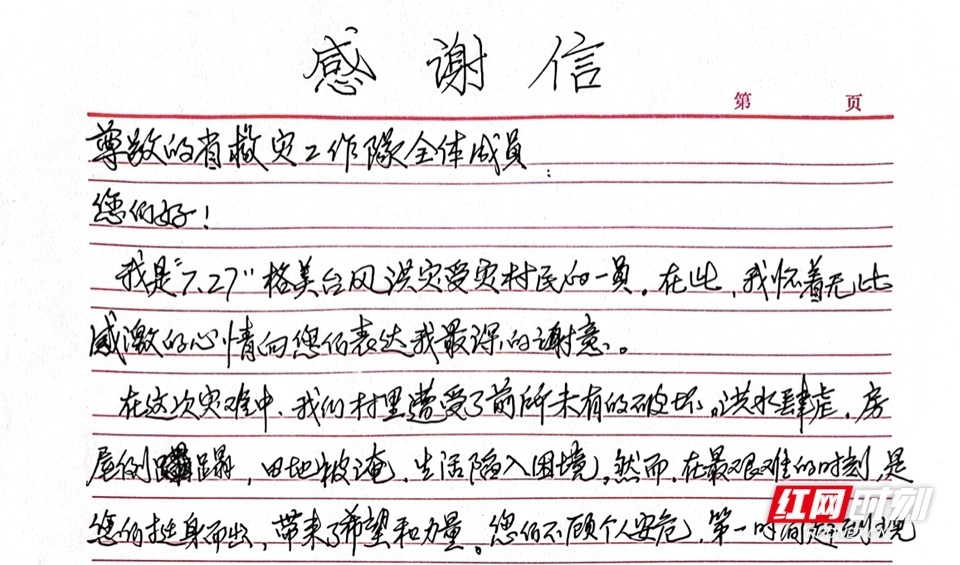 感谢信
第 页
尊敬的省救灾工作队全体成員：
您们好！
我是"7.27"格美台风洪灾受灾村民的一員。在此，我怀着无比
感激的心情向您们表达我最深的谢意。
在这次灾难中、我们村里遭受了前所未有的破坏。洪水肆虐，房
屋倒蹋，田地被淹，生活陷入困境，然而，在最艰难的时刻，是
您们挺身而出，带来了希望和力量。您们不顾个人安危，第一时间赶到现
红网时刻